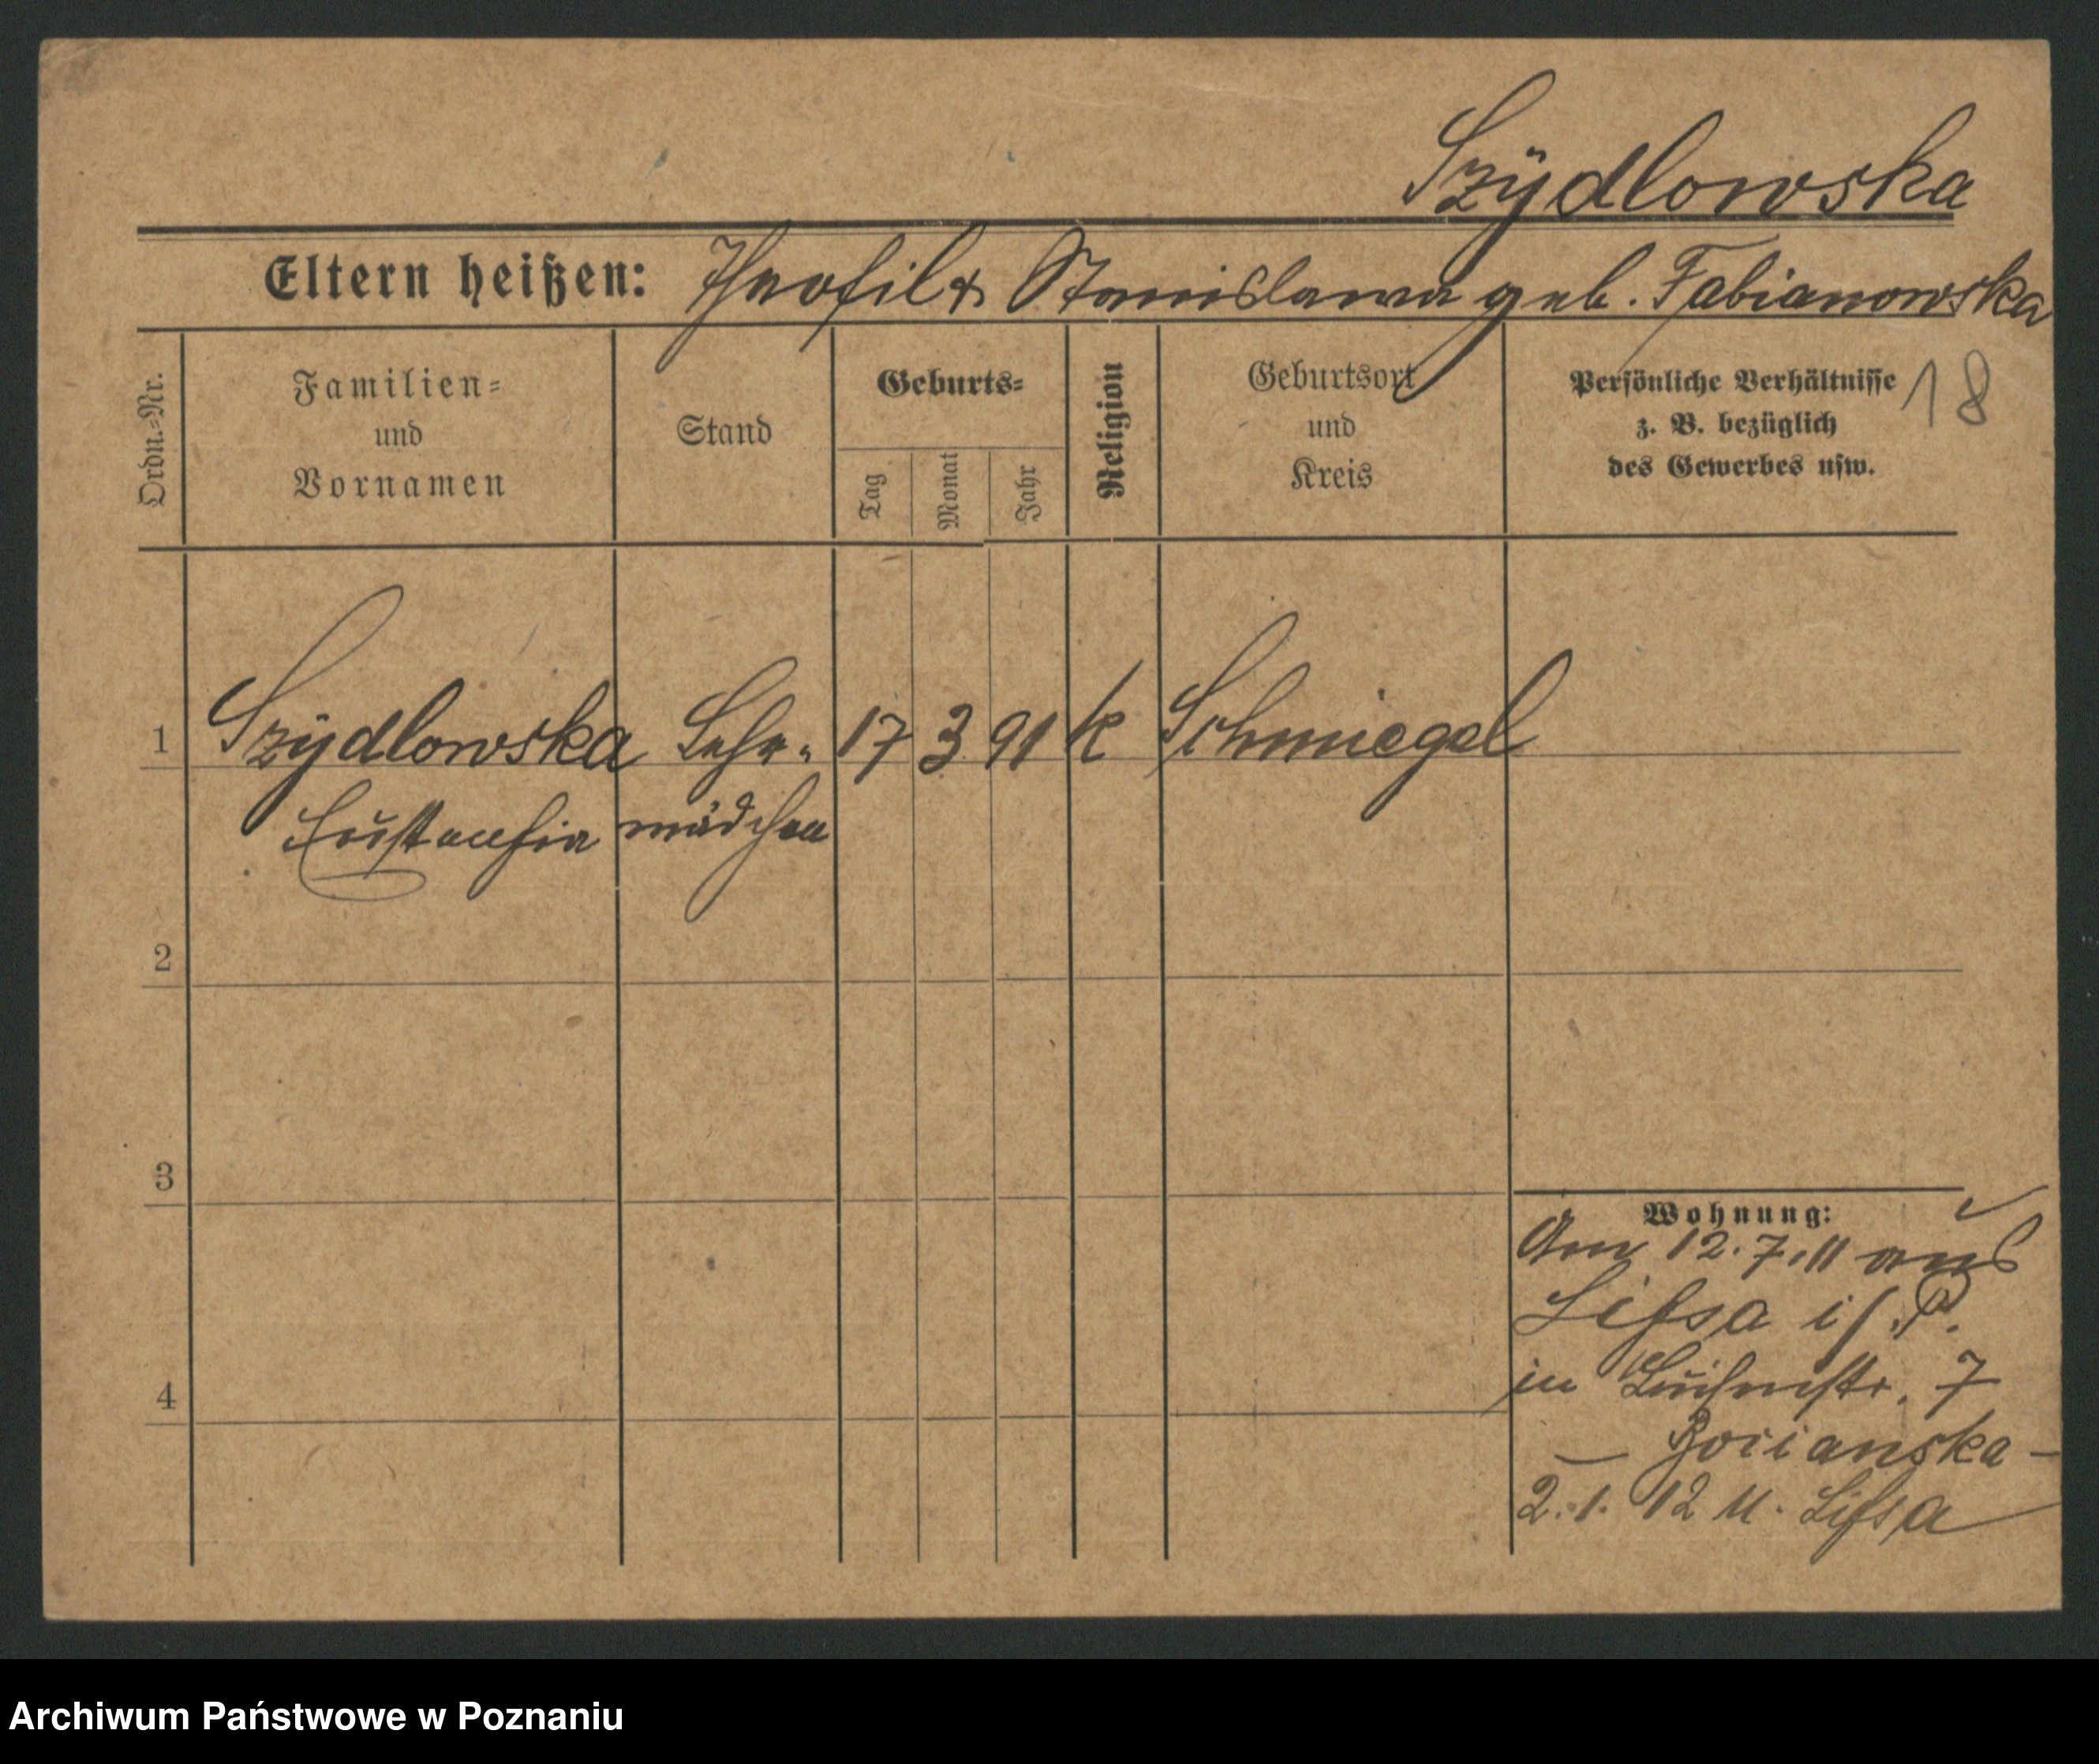 Szÿdlowska
Eltern heißen: Theofil & Stanislawa geb. Fabianowska
Ordn.-Nr.
Familien-
und
Vornamen
Stand
Geburts-
Tag
Monat
Jahr
Religion
Geburtsort
und
Kreis
Persönliche Verhältnisse
z. B. bezüglich
des Gewerbes usw.
18
1 Szÿdlowska Lehr- 17 3 91 k Schmiegel
mädchen
2
3
4
Wohnung:
Am 12.7.11 aus
Lissa i/.P.
in 7
— Bocianska —
2.1.12 u. Lissa
Archiwum Państwowe w Poznaniu